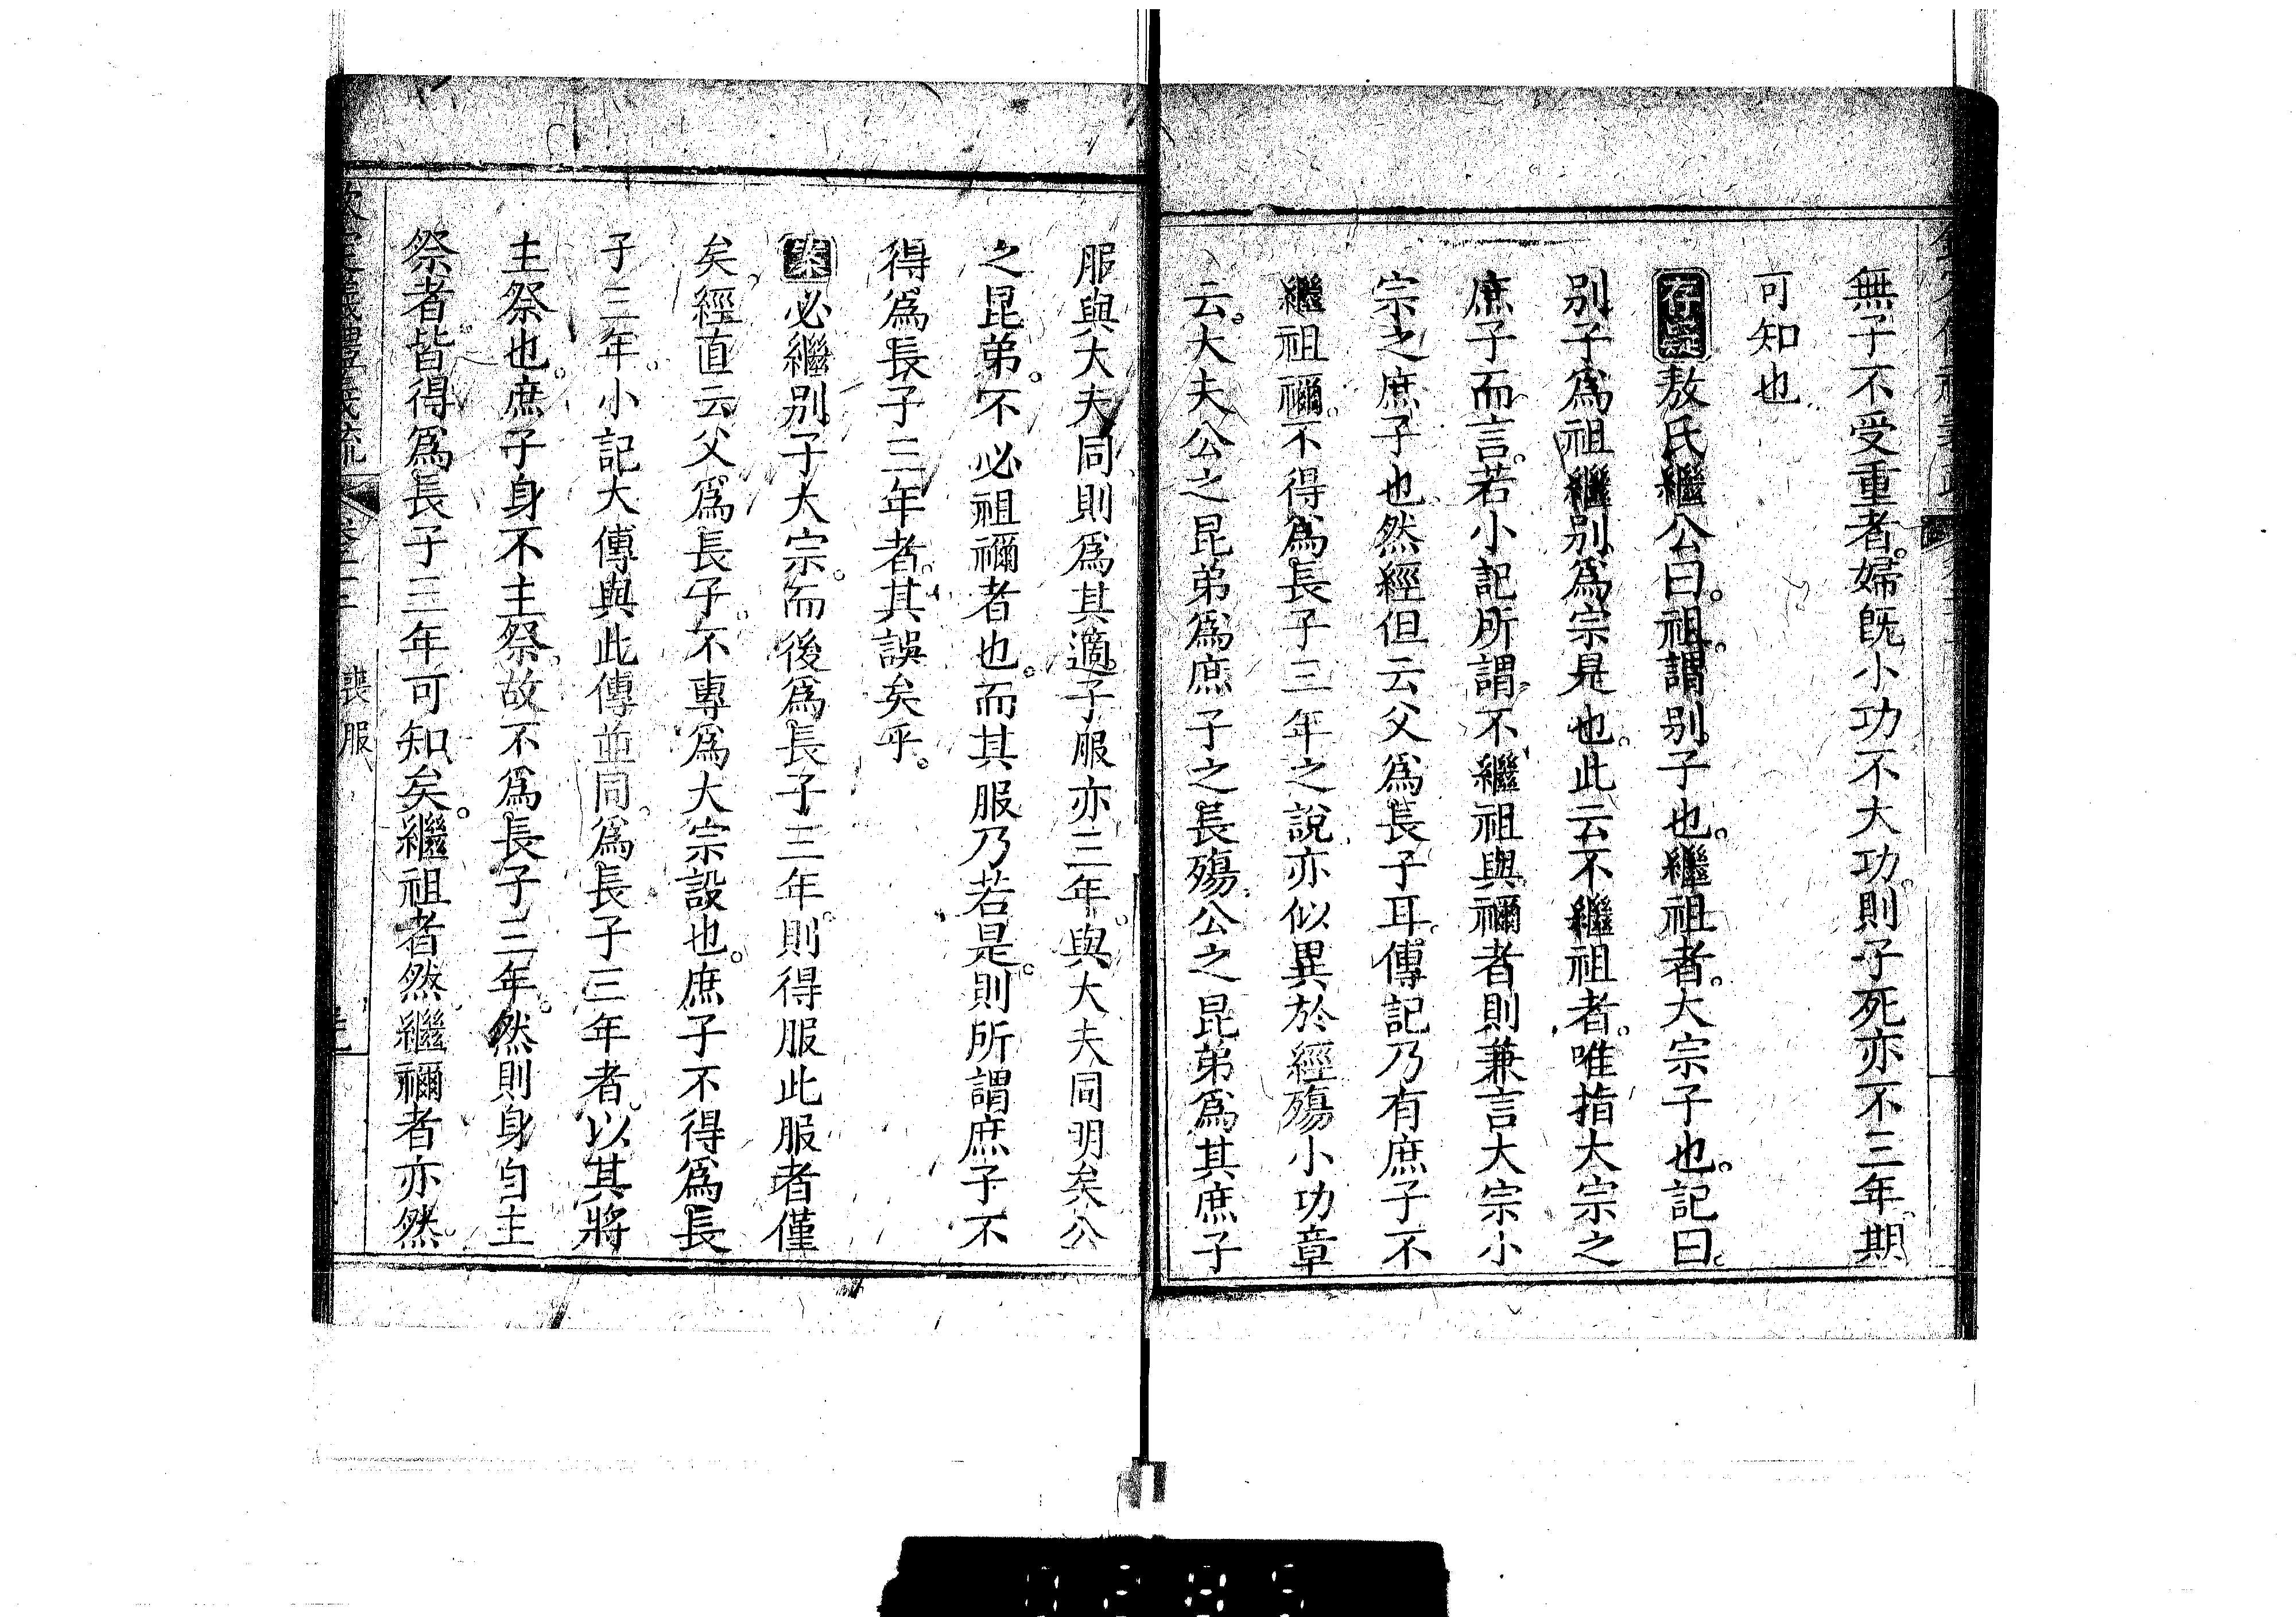 無子不受重者。婦既小功不大功。則子死亦不三年。期
可知也
存疑敖氏繼公曰。祖。謂别子也。繼祖者。大宗子也。記曰。
别子爲祖繼别爲宗是也。此云不繼祖者。唯指大宗之
庶子而言。若小記所謂不繼祖與禰者則兼言大宗小
宗之庶子也。然經但云父爲長子耳。傳記乃有庶子不
繼祖禰。不得爲長子三年之說。亦似異於經殤小功章
云。大夫公之昆弟爲庶子之長殤。公之昆弟爲其庶子
服與大夫同。則爲其適子服亦三年。與大夫同明矣。公
之昆弟。不必祖禰者也。而其服乃若是。則所謂庶子不
得爲長子三年者。其誤矣乎。
案必繼别子大宗。而後爲長子三年。則得服此服者僅
矣。經直云父爲長子。不專爲大宗設也。庶子不得爲長
子三年。小記大傳與此傳並同。爲長子三年者。以其將
主祭也。庶子身不主祭。故不爲長子三年。然則身自主
祭者。皆得爲長子三年可知矣。繼祖者然。繼禰者亦然。
欽定儀禮義疏 喪服